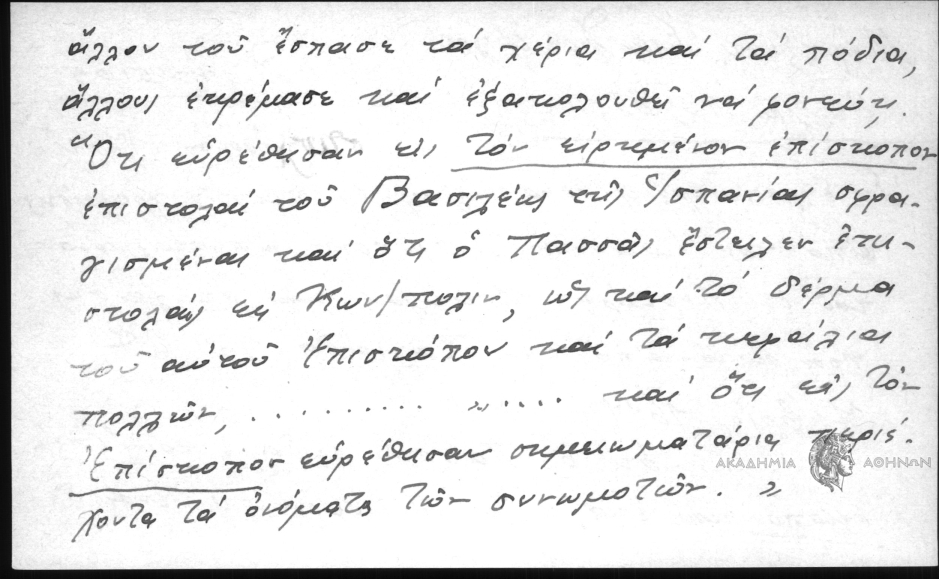 ἄλλον τοῦ ἔσπασε τά χέρια καί τά πόδια,
ἄλλους ἐκρέμασε καί ἐξακολουθεῖ νά φονεύῃ.
"Ὅτι εὑρέθησαν εἰς τόν εἰρημένον ἐπίσκοπον
ἐπιστολαί τοῦ Βασιλέως τῆς Ἱσπανίας σφρα-
γισμέναι καί ὅτι ὁ Πασσᾶς ἔστειλεν ἐπι-
στολάς εἰς Κων/πολιν, ὡς καί τό δέρμα
τοῦ αὐτοῦ Ἐπισκόπου καί τά κεφάλια
πολλῶν, .......... " .... καί ὅτι εἰς τόν
Ἐπίσκοπον εὑρέθησαν σημειωματάρια περιέ-
χοντα τά ὀνόματα τῶν συνωμοτῶν. "
ΑΚΑΔΗΜΙΑ ΑΘΗΝΩΝ